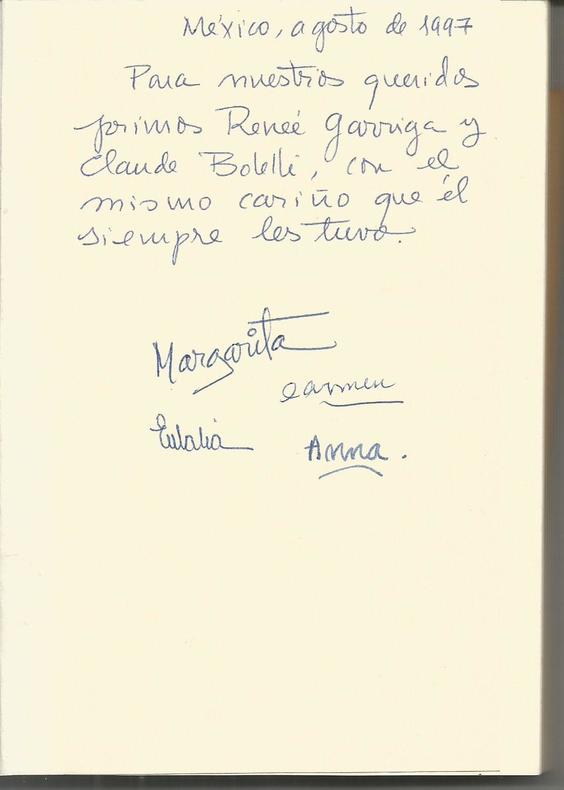 México, agosto de 1997
Para nuestros queridos
primos Reneé Garriga y
Claude Bolelli, con el
mismo cariño que él
siempre les tuvo.
Margarita
Carmen
Eulalia
Anna.